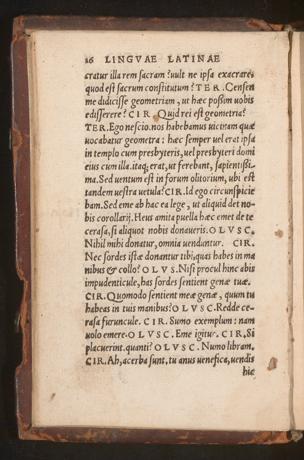 26 LINGVAE LATINAE
cratur illa rem sacram? uult ne ipsa exacrare,
quod est sacrum constitutum? TER. Censen
me didicisse geometriam, ut hæc poßim uobis
edisserere? CIR. Quid rei est geometria?
TER. Ego nescio. nos habebamus uicinam quæ
uocabatur geometra: hæc semper uel erat ipsa
in templo cum presbyteris, uel presbyteri domi
eius cum illa. itaq; erat, ut ferebant, sapientißi-
ma. Sed uentum est in forum olitorium, ubi est
tandem uestra uetula? CIR. Id ego circunspicie
bam. Sed eme ab hac ea lege, ut aliquid det no-
bis corollarij. Heus amita puella hæc emet de te
cerasa, si aliquot nobis donaueris. OLVSC.
Nihil mihi donatur, omnia uenduntur. CIR.
Nec sordes istæ donantur tibi, quas habes in ma
nibus & collo? OLVS. Nisi procul hinc abis
impudenticule, has sordes sentient genæ tuæ.
CIR. Quomodo sentient meæ genæ, quum tu
habeas in tuis manibus? OLVSC. Redde ce-
rasa furuncule. CIR. Sumo exemplum: nam
uolo emere. OLVSC. Eme igitur. CIR. Si
placuerint. quanti? OLVSC. Numo libram.
CIR. Ah, acerba sunt, tu anus uenefica, uendis
hic